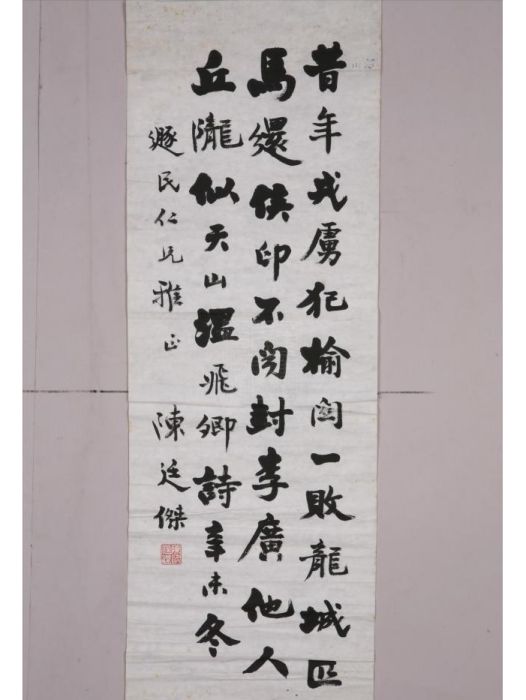 昔年戎虜犯榆關一敗龍城匹
馬還侯印不聞封李廣他人
丘隴似天山溫飛卿詩辛未冬
遯民仁兄雅正
陳延傑